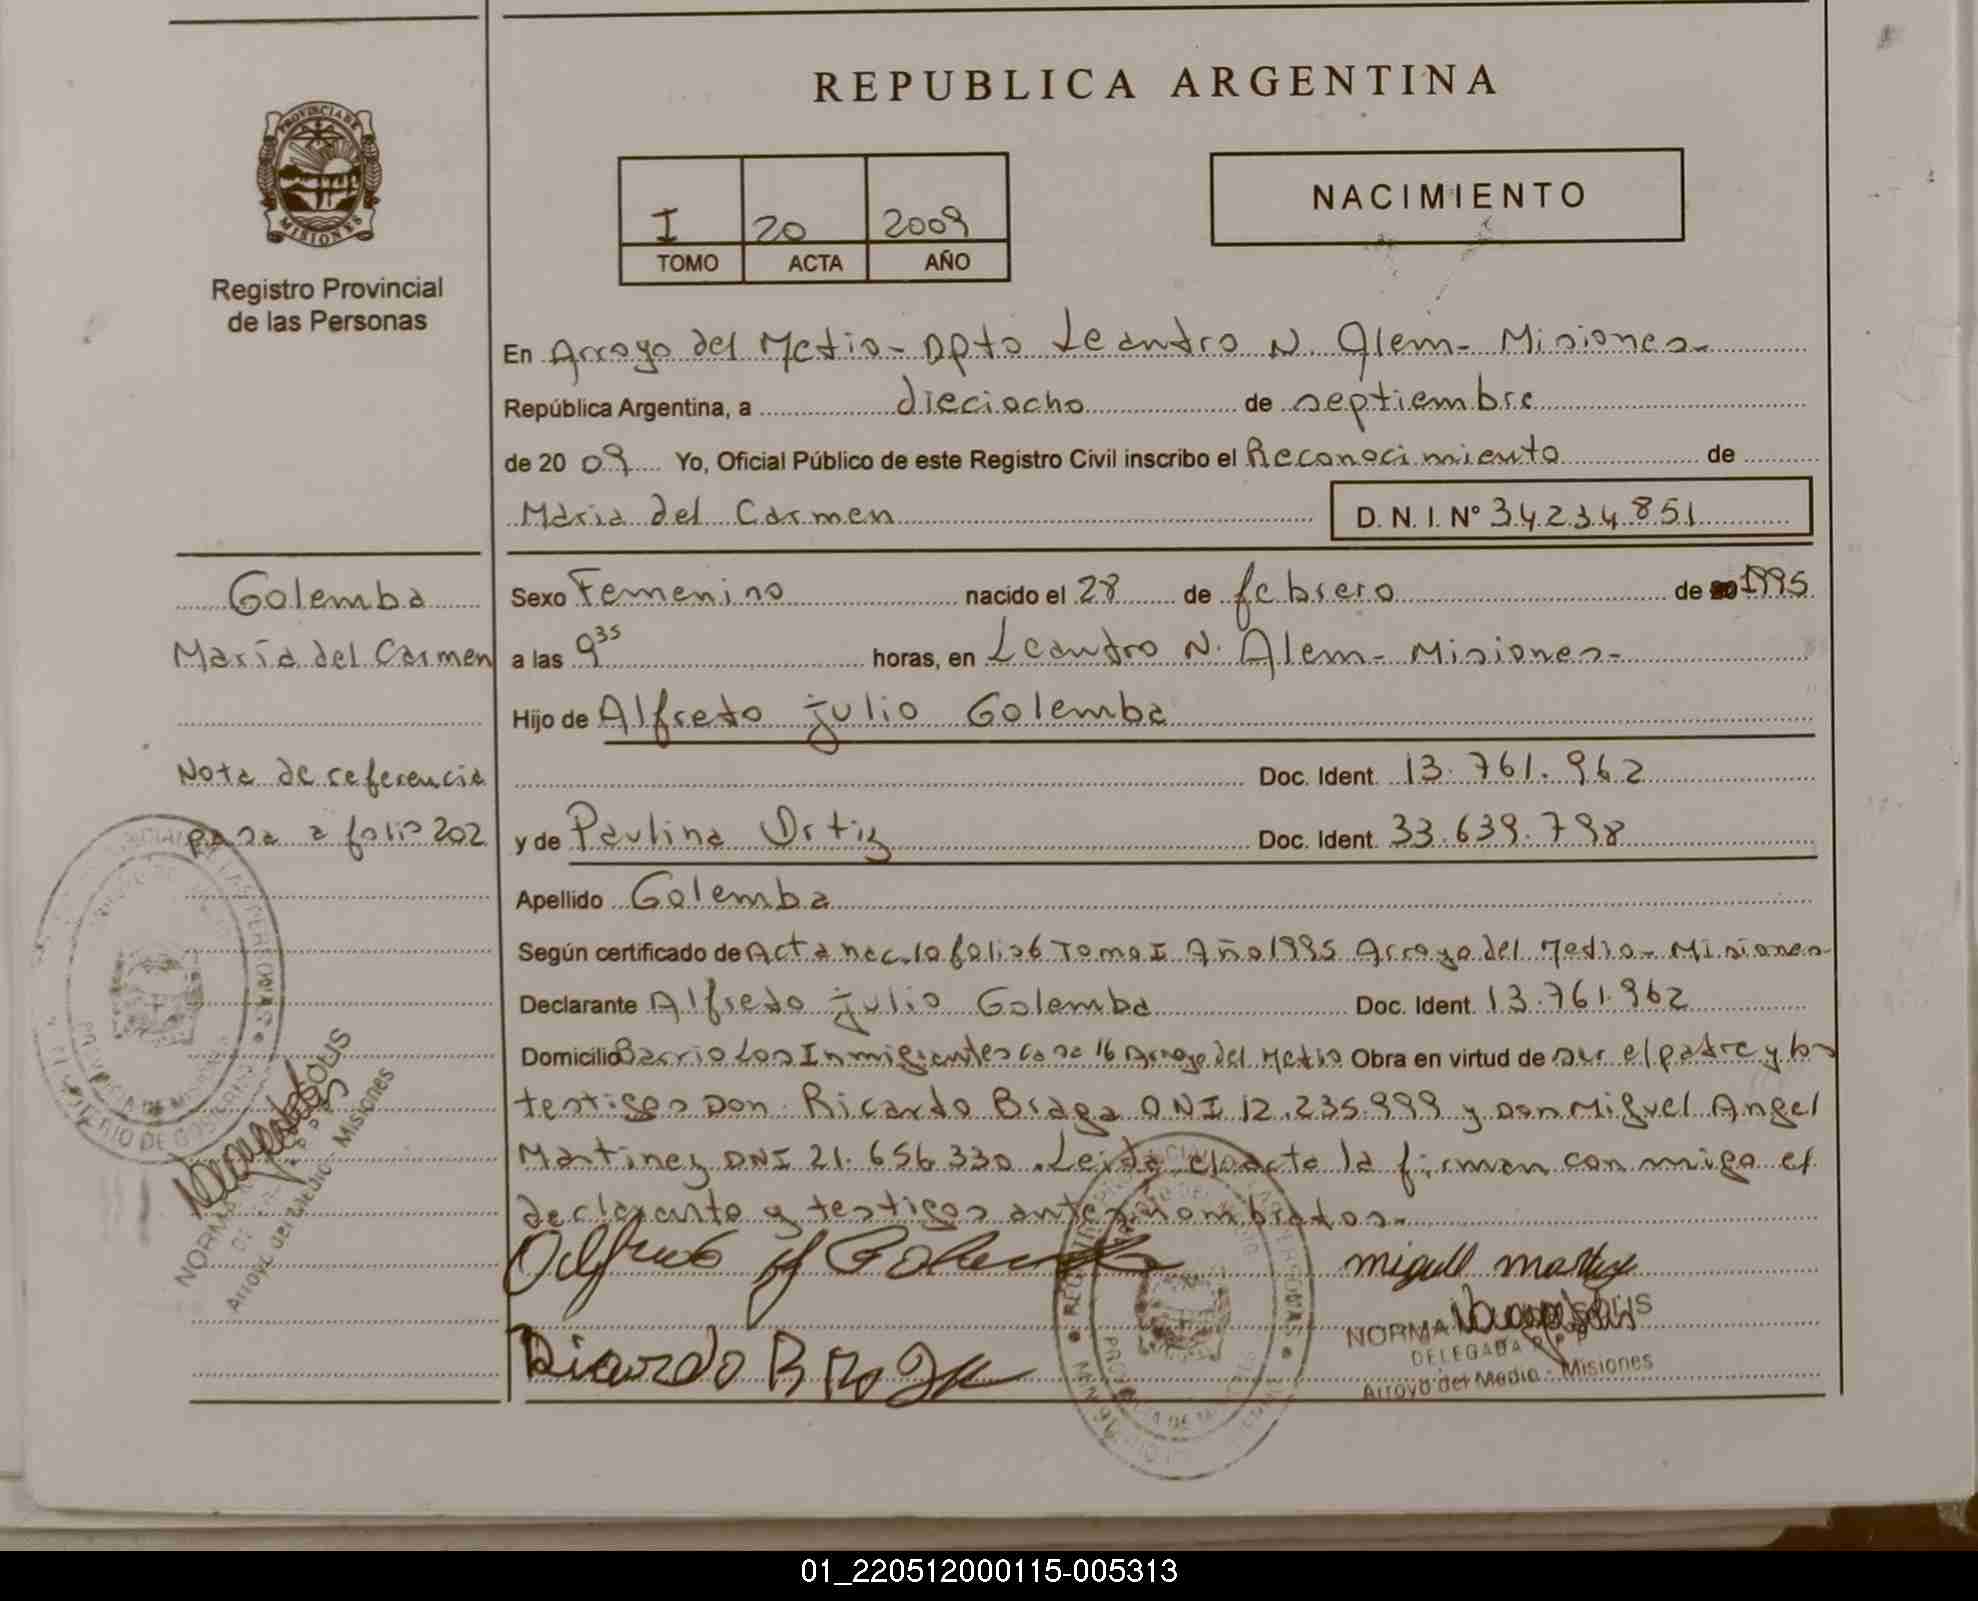 REPUBLICA ARGENTINA
PROVINCIA DE
MISIONES
Registro Provincial
de las Personas
I 20 2009
TOMO ACTA AÑO
NACIMIENTO
En Arroyo del Medio - Dpto Leandro N. Alem - Misiones -
República Argentina, a dieciocho de septiembre
de 20 09 Yo, Oficial Público de este Registro Civil inscribo el Reconocimiento de
Maria del Carmen D. N. I. N° 34.234.851
Golemba
María del Carmen
Nota de referencia
pasa a folio 202
Sexo Femenino nacido el 28 de febrero de 1995
a las 9 35 horas, en Leandro N. Alem - Misiones -
Hijo de Alfredo julio Golemba
Doc. Ident. 13.761.962
y de Paulina Ortiz Doc. Ident. 33.639.798
Apellido Golemba
Según certificado de Acta nac. 10 folio 6 Tomo I Año 1995 Arroyo del Medio - Misiones -
Declarante Alfredo julio Golemba Doc. Ident. 13.761.962
Domicilio Barrio Los Inmigrantes casa 16 Arroyo del Medio Obra en virtud de ser el padre y los
testigos Don Ricardo Braga DNI 12.235.999 y Don Miguel Angel
Martinez DNI 21.656.330. Leida el acta la firman con migo el
declarante y testigos antes nombrados -
Alfredo J Golemba
miguel martinez
Ricardo Braga
NORMA SOLIS
DELEGADA R P P
Arroyo del Medio - Misiones
NORMA SOLIS
Arroyo del Medio - Misiones
01_220512000115-005313